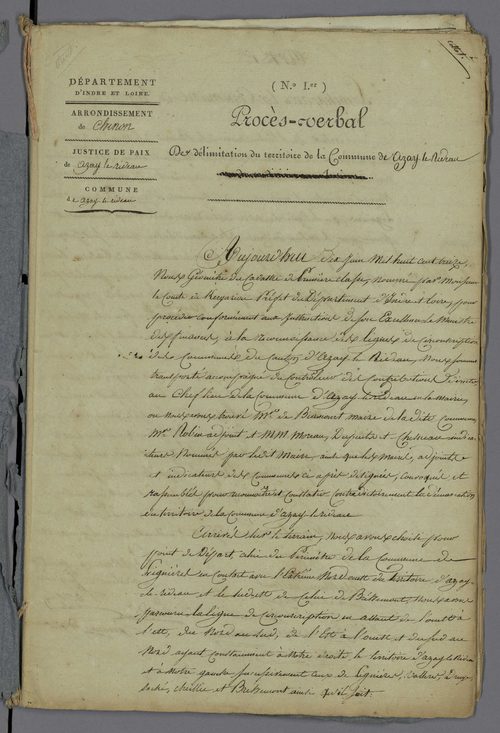 DÉPARTEMENT
D'INDRE ET LOIRE.
ARRONDISSEMENT
de Chinon
JUSTICE DE PAIX
de Azay le rideau
COMMUNE
de Azay le rideau
( N.º I.er )
Procès-verbal
De délimitation du territoire de la Commune de Azay le Rideau
Aujourd'huy dix Juin Mil huit cent
Nous Géomètre du Cadastre de Première classe, nommé par Monsieur
le Comte de Kergariou Préfet du Département d'Indre et Loire, pour
procéder conformément aux Instructions de son Excellence le Ministre
des finances, à la Reconnaissance des lignes de Circonscription
des Communes du Canton d'Azay le Rideau, Nous sommes
transporté accompagné du Contrôleur des Contributions Directes
au Chef lieu de la Commune d'Azay le Rideau en la Mairie,
ou nous avons trouvé Mr. de maire de la dite Commune
Mr. Robin adjoint et MM. Moreau, et Chateau indica-
teurs Nommés par ledit Maire, ainsi que les Maires, adjoints
et indicateurs des Communes ci après désignées, convoqués et
rassemblés pour reconnaître et constater contradictoirement la
du territoire de la Commune d'Azay le rideau
Arrivés sur le terrain, Nous avons choisi pour
point de Départ, celui du Périmètre de la Commune de
Lignières en Contact avec l'Extrême Nord ouest du territoire d'azay
le rideau et le sud est de Celui de Bréhémont, Nous avons
parcouru la ligne de circonscription en allant de l'ouest à
l'est, du Nord au sud, de l'Est à l'ouest et du sud au
Nord ayant constamment à Notre droite le territoire d'azay le Rideau
et à Notre gauche successivement ceux de Lignières, Vallères,
Saché, Cheillé et Bréhémont ainsi qu'il suit: